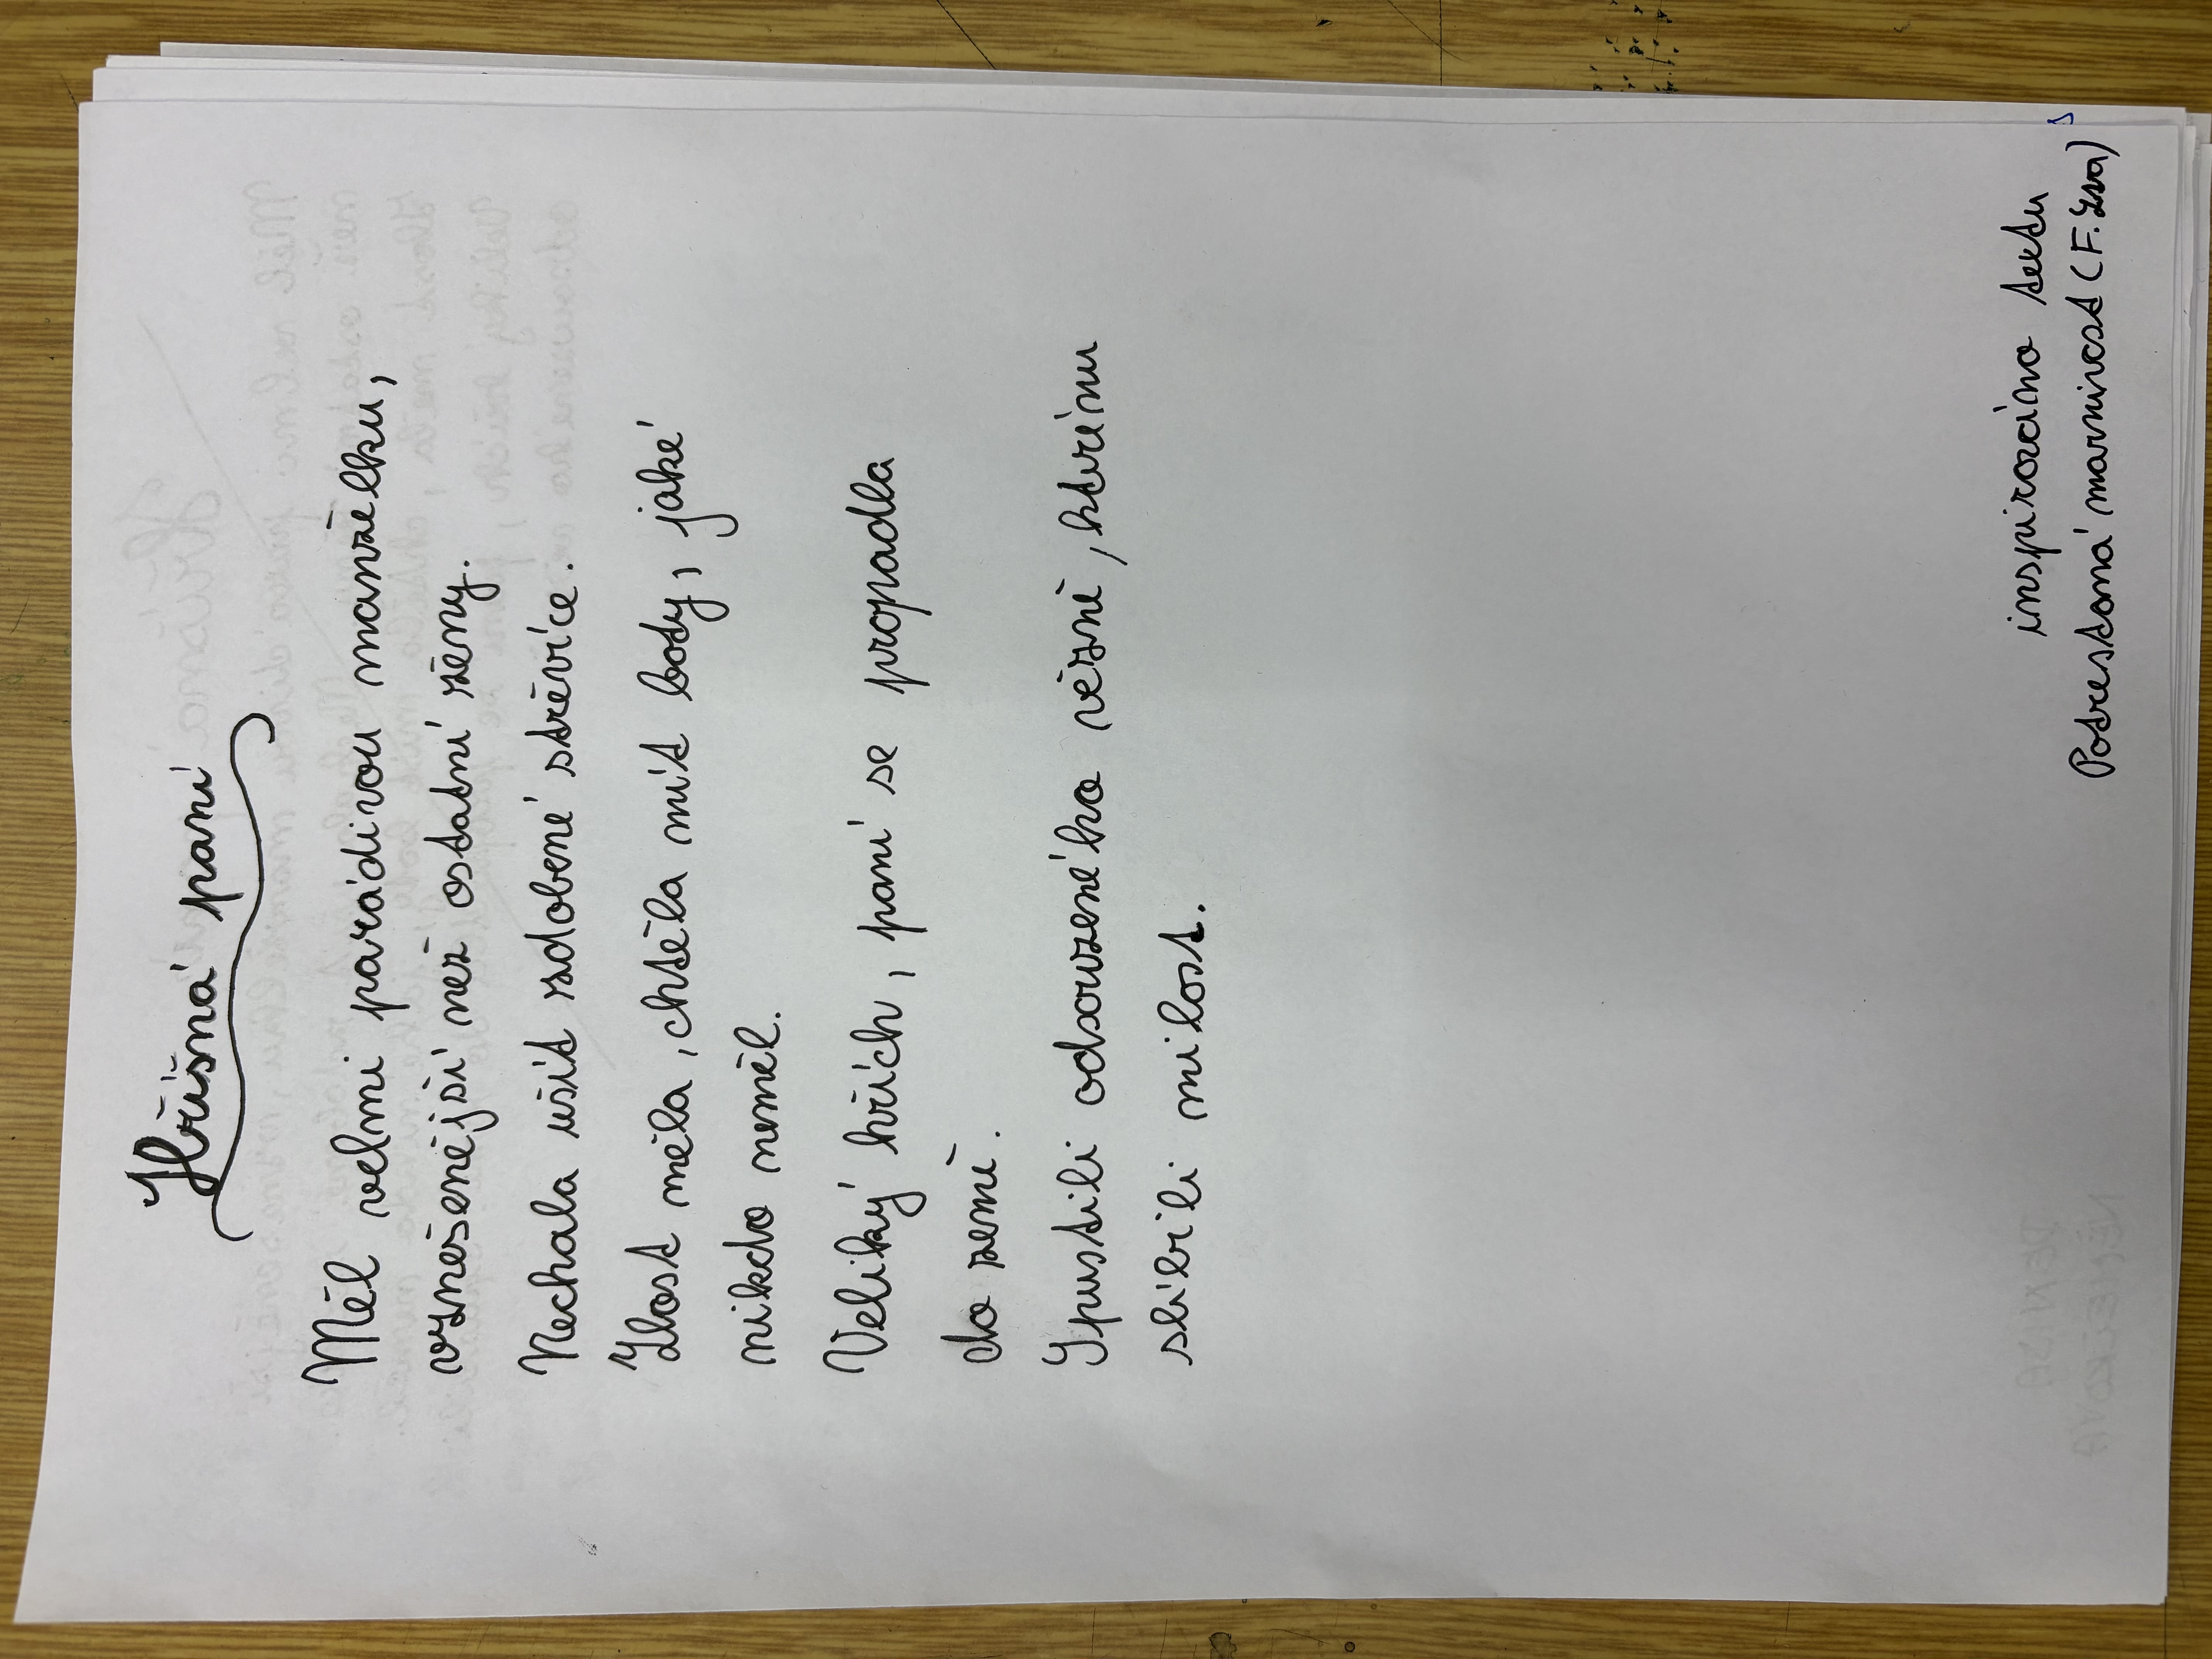 Hříšná paní
Měl velmi parádivou manželku,
vznešenější než ostatní ženy.
Nechala ušít zdobené střevíce.
Zlost měla, chtěla mít boty, jaké
nikdo neměl.
Veliký hřích, paní se propadla
do země.
Spustili odsouzeného vězně, kterému
slíbili milost.
inspiračíno textu
Potrestaná marnivost (F. Lva)